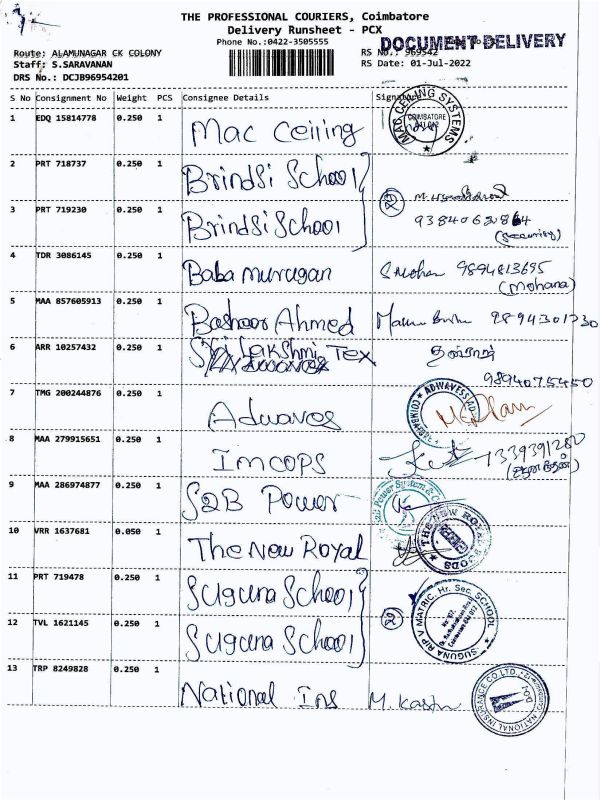 THE PROFESSIONAL COURIERS, Coimbatore
Delivery Runsheet - PCX
Phone No.:0422-3505555
DOCUMENT DELIVERY
Route: ALAMUNAGAR CK COLONY
RS No.: 969542
Staff: S.SARAVANAN
RS Date: 01-Jul-2022
DRS No.: DCJB96954201
S No Consignment No Weight PCS Consignee Details Signature
1 EDQ 15814778 0.250 1 Mac Ceiling
MAC CEILING SYSTEMS COIMBATORE
2 PRT 718737 0.250 1 Brindsi School
3 PRT 719230 0.250 1 Brindsi School
(Security)
4 TDR 3086145 0.250 1 Baba murugan S Mohan 9894813695
(Mohana)
5 MAA 857605913 0.250 1 Bashoor Ahmed
6 ARR 10257432 0.250 1 Sri Lakshmi Tex
9894075450
7 TMG 200244876 0.250 1 Adwaves
8 MAA 279915651 0.250 1 Imcops
9 MAA 286974877 0.250 1 S2B Power
10 VRR 1637681 0.050 1 The New Royal
THE NEW ROYAL FOODS
11 PRT 719478 0.250 1 Suguna School
12 TVL 1621145 0.250 1 Suguna School
SUGUNA RIP V MATRIC. Hr. Sec. SCHOOL
13 TRP 8249828 0.250 1 National Ins
NATIONAL INSURANCE CO.LTD.